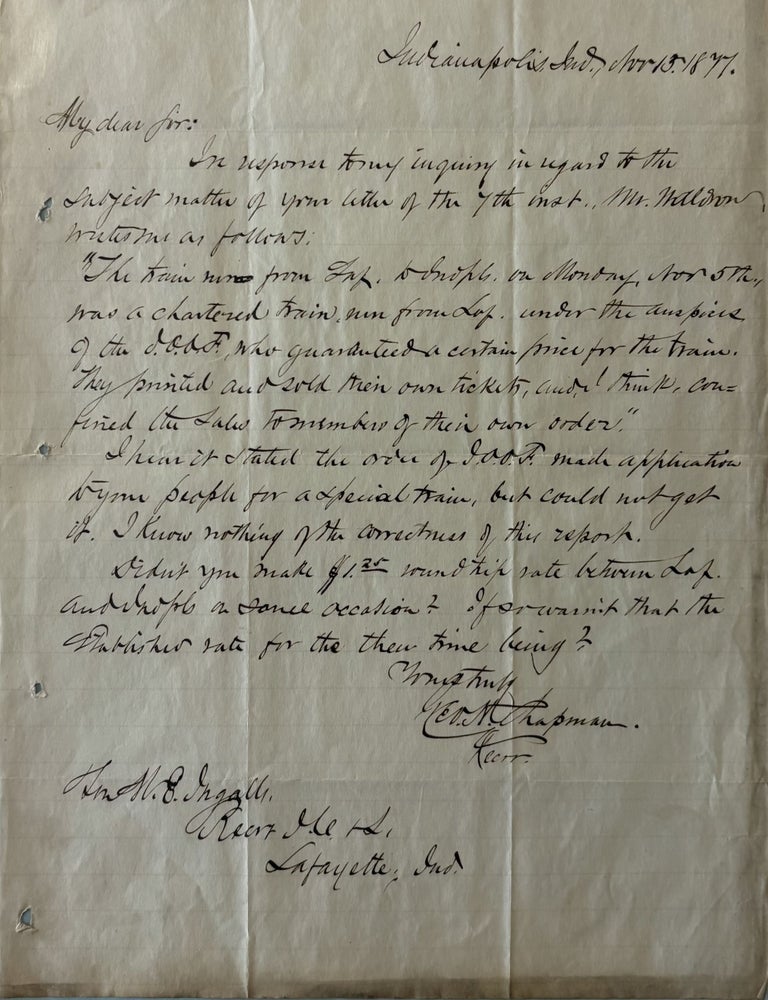 Indianapolis, Ind., Nov 13. 1877.
My dear sir:
In response to my inquiry in regard to the
subject matter of your letter of the 7th inst., Mr. Waldron,
writes me as follows:
"The train run from Laf. to Indpls. on Monday, Nov 5th,
was a chartered train, run from Laf. under the auspices
of the I.O.O.F., who guaranteed a certain price for the train.
They printed and sold their own tickets, and, I think, con=
fined the sales to members of their own order."
I hear it stated the order of I.O.O.F. made application
to your people for a special train, but could not get
it. I know nothing of the correctness of this report.
Didn't you make $1.25 round trip rate between Laf.
and Indpls on same occasion? If so wasn't that the
established rate for the then time being?
Yours truly
Geo. H. Chapman.
Recvr.
Hon M. E. Ingalls.
Recvr I. C. & L.
Lafayette, Ind.